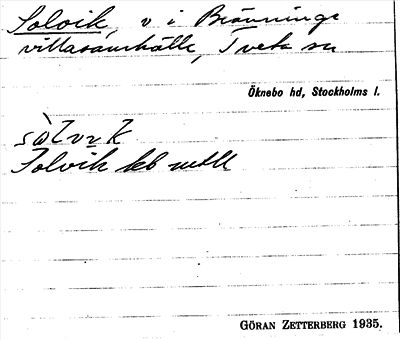 Solvik, v i Brännings
villasamhälle, Tveta sn
Öknebo hd, Stockholms l.
sòlvik
Solvik kb
GÖRAN ZETTERBERG 1935.